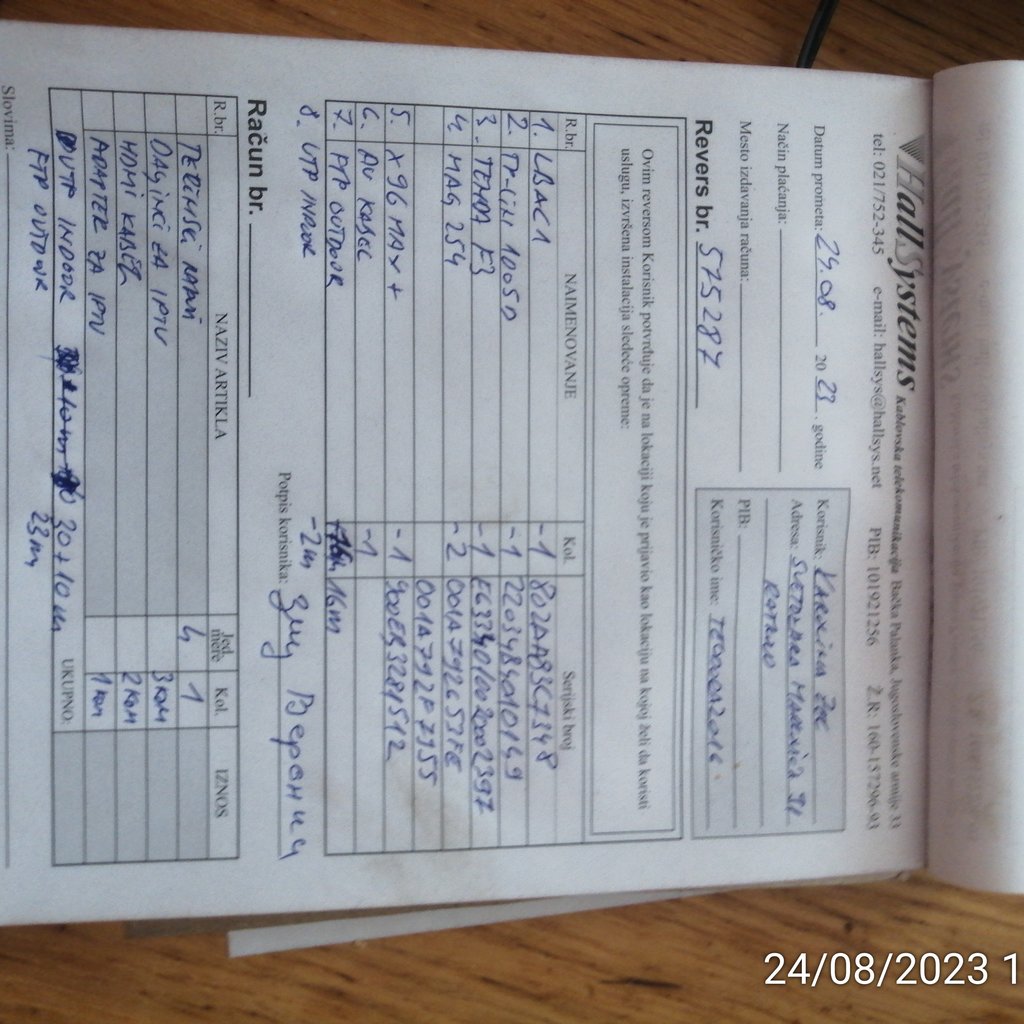 HallSystems Kablovska telekomunikacija Bačka Palanka, Jugoslovenske armije 33
tel: 021/752-345 e-mail: hallsys@hallsys.net PIB: 101921256 Ž.R: 160-157296-93
Datum prometa: 24.08. 20 23. godine
Način plaćanja:
Mesto izdavanja računa:
Korisnik:
Adresa:
PIB:
Korisničko ime:
Revers br. 575287
Ovim reversom Korisnik potvrđuje da je na lokaciji koju je prijavio kao lokaciju na kojoj želi da koristi
uslugu, izvršena instalacija sledeće opreme:
R.br. NAIMENOVANJE Kol. Serijski broj
1. LBAC1 -1 802AA83C7348
2. TP-LINK 1005D -1 2203484010149
3. TENDA F3 -1 E6334010020002397
4. MAG 254 -2 001A792C57FE
001A792F7955
5. X96 MAX+ -1 900EB3291512
6. AV KABEL -1
7. FTP OUTDOOR 16m
8. UTP INDOOR -2m
Potpis korisnika:
Račun br.
R.br. NAZIV ARTIKLA Jed. mere Kol. IZNOS
4 1
ZA IPTV 3 kom
HDMI KABEL 2 kom
ADAPTER ZA IPTV 1 kom
UTP INDOOR 20+10m UKUPNO:
FTP OUTDOOR 23m
Slovima:
24/08/2023 1